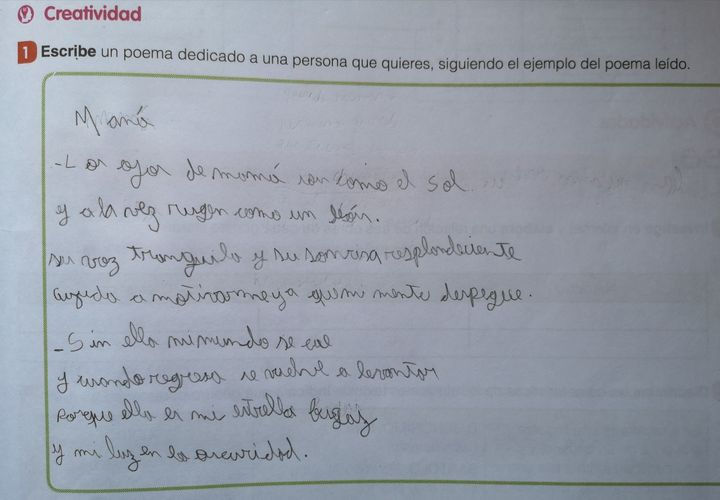 Creatividad
1 Escribe un poema dedicado a una persona que quieres, siguiendo el ejemplo del poema leído.
Mamá
-Los ojos de mamá son como el sol
y a la vez rugen como un león.
su voz tranquila y su sonrisa resplandeciente
ayuda a motivarme y a que mi mente despegue.
-Sin ella mi mundo se cae
y cuando regresa se vuelve a levantar
Porque ella es mi estrella fugaz
y mi luz en la oscuridad.